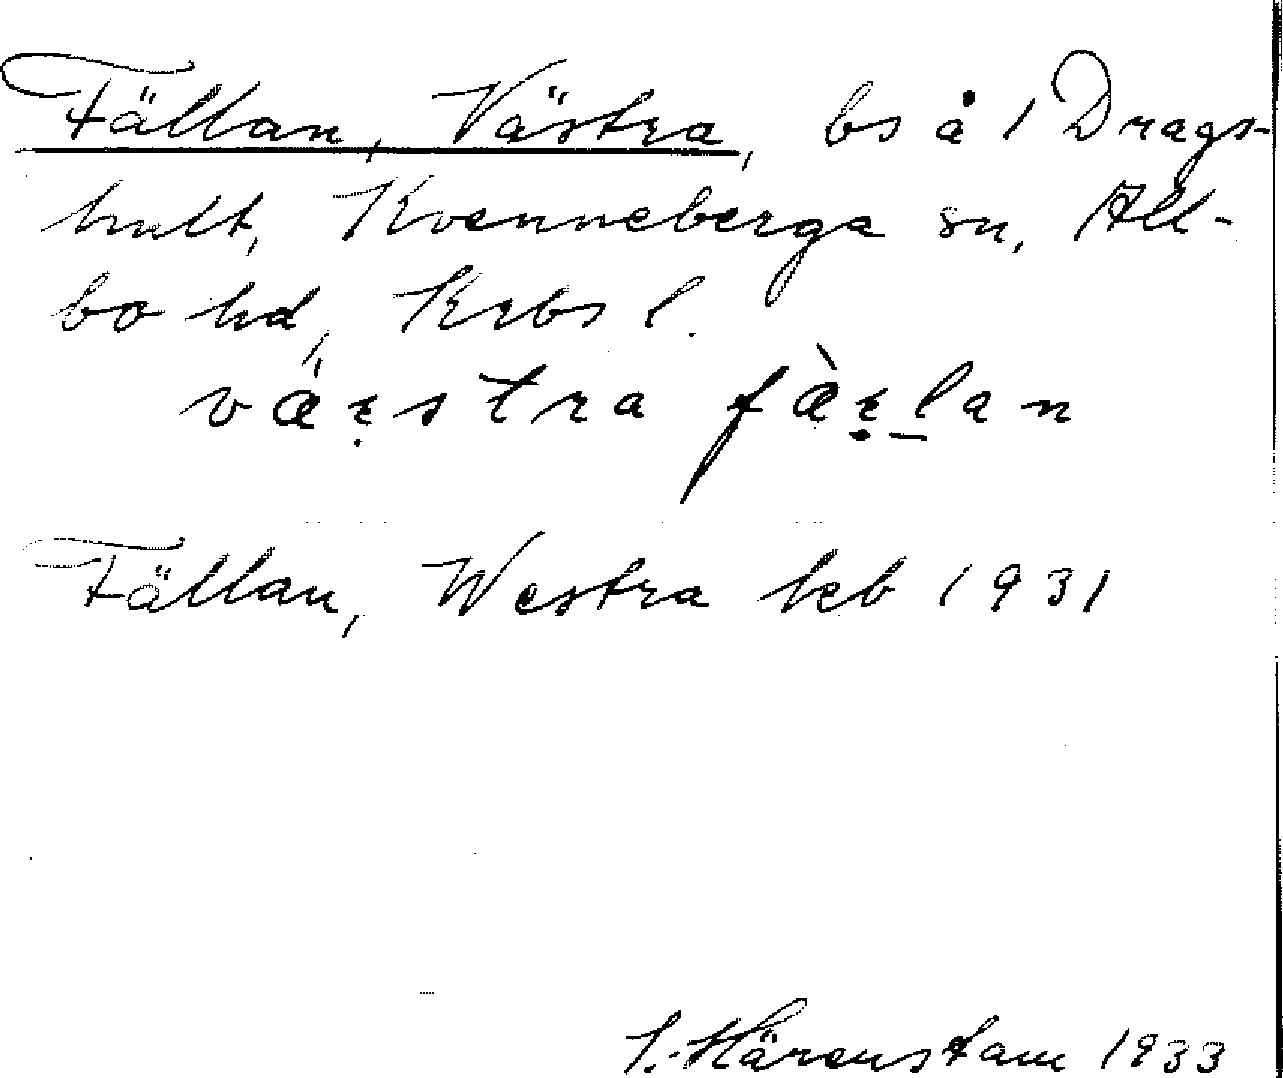 Fällan, Västra, bs å 1 Drags-
hult, Kvenneberga sn, All-
bo hd, Krbs l.
vä́ṛstra fæ̀ṛlan
Fällan, Westra kb 1931
S. Härenstam 1933